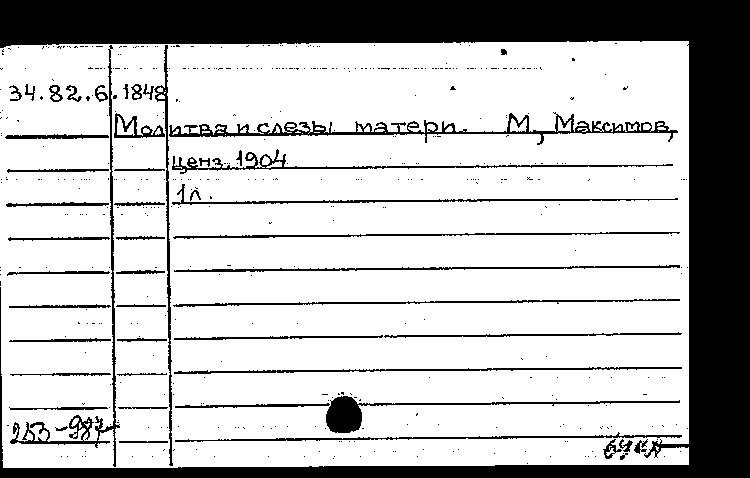 34.82.6.1848
Молитва и слезы матери. М, Максимов,
ценз. 1904
1л.
253-987